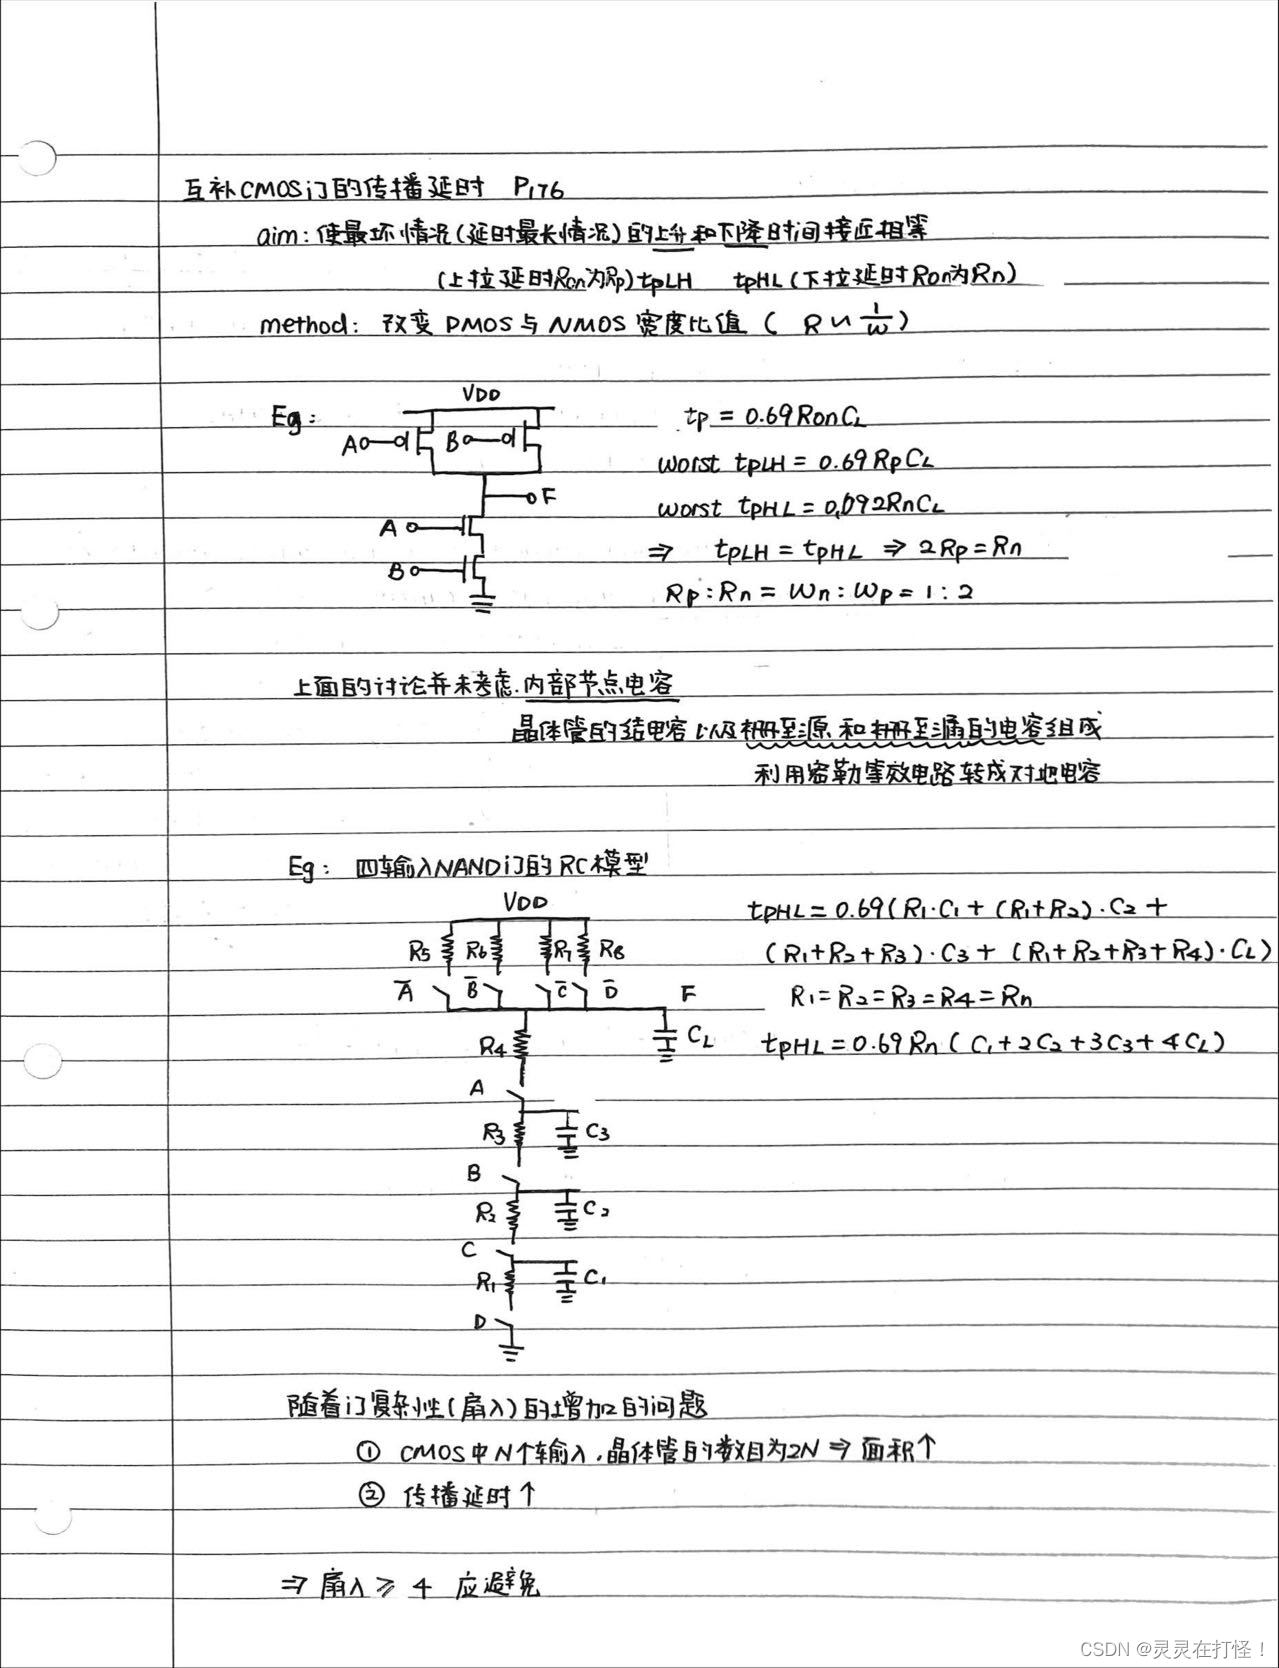 互补CMOS门的传播延时 P176
aim: 使最坏情况(延时最长情况)的上升和下降时间接近相等
(上拉延时Ron为Rp) tpLH tpHL (下拉延时Ron为Rn)
method: 改变 PMOS 与 NMOS 宽度比值 ( R ∽ 1/W )
Eg:
VDD
A B
F
A
B
tp = 0.69RonCL
worst tpLH = 0.69RpCL
worst tpHL = 0.092RnCL
⇒ tpLH = tpHL ⇒ 2Rp = Rn
Rp : Rn = Wn : Wp = 1 : 2
上面的讨论并未考虑.内部节点电容
晶体管的结电容以及栅至源和栅至漏的电容组成
利用密勒等效电路转成对地电容
Eg: 四输入NAND门的RC模型
VDD
R5 R6 R7 R8
A̅ B̅ C̅ D̅ F
R4 CL
A
R3 C3
B
R2 C2
C
R1 C1
D
tpHL = 0.69(R1·C1 + (R1+R2)·C2 +
(R1+R2+R3)·C3 + (R1+R2+R3+R4)·CL)
R1 = R2 = R3 = R4 = Rn
tpHL = 0.69Rn(C1+2C2+3C3+4CL)
随着门复杂性(扇入)的增加的问题
① CMOS中N个输入,晶体管的数目为2N ⇒ 面积↑
② 传播延时↑
⇒ 扇入 ≥ 4 应避免
CSDN @灵灵在打怪!